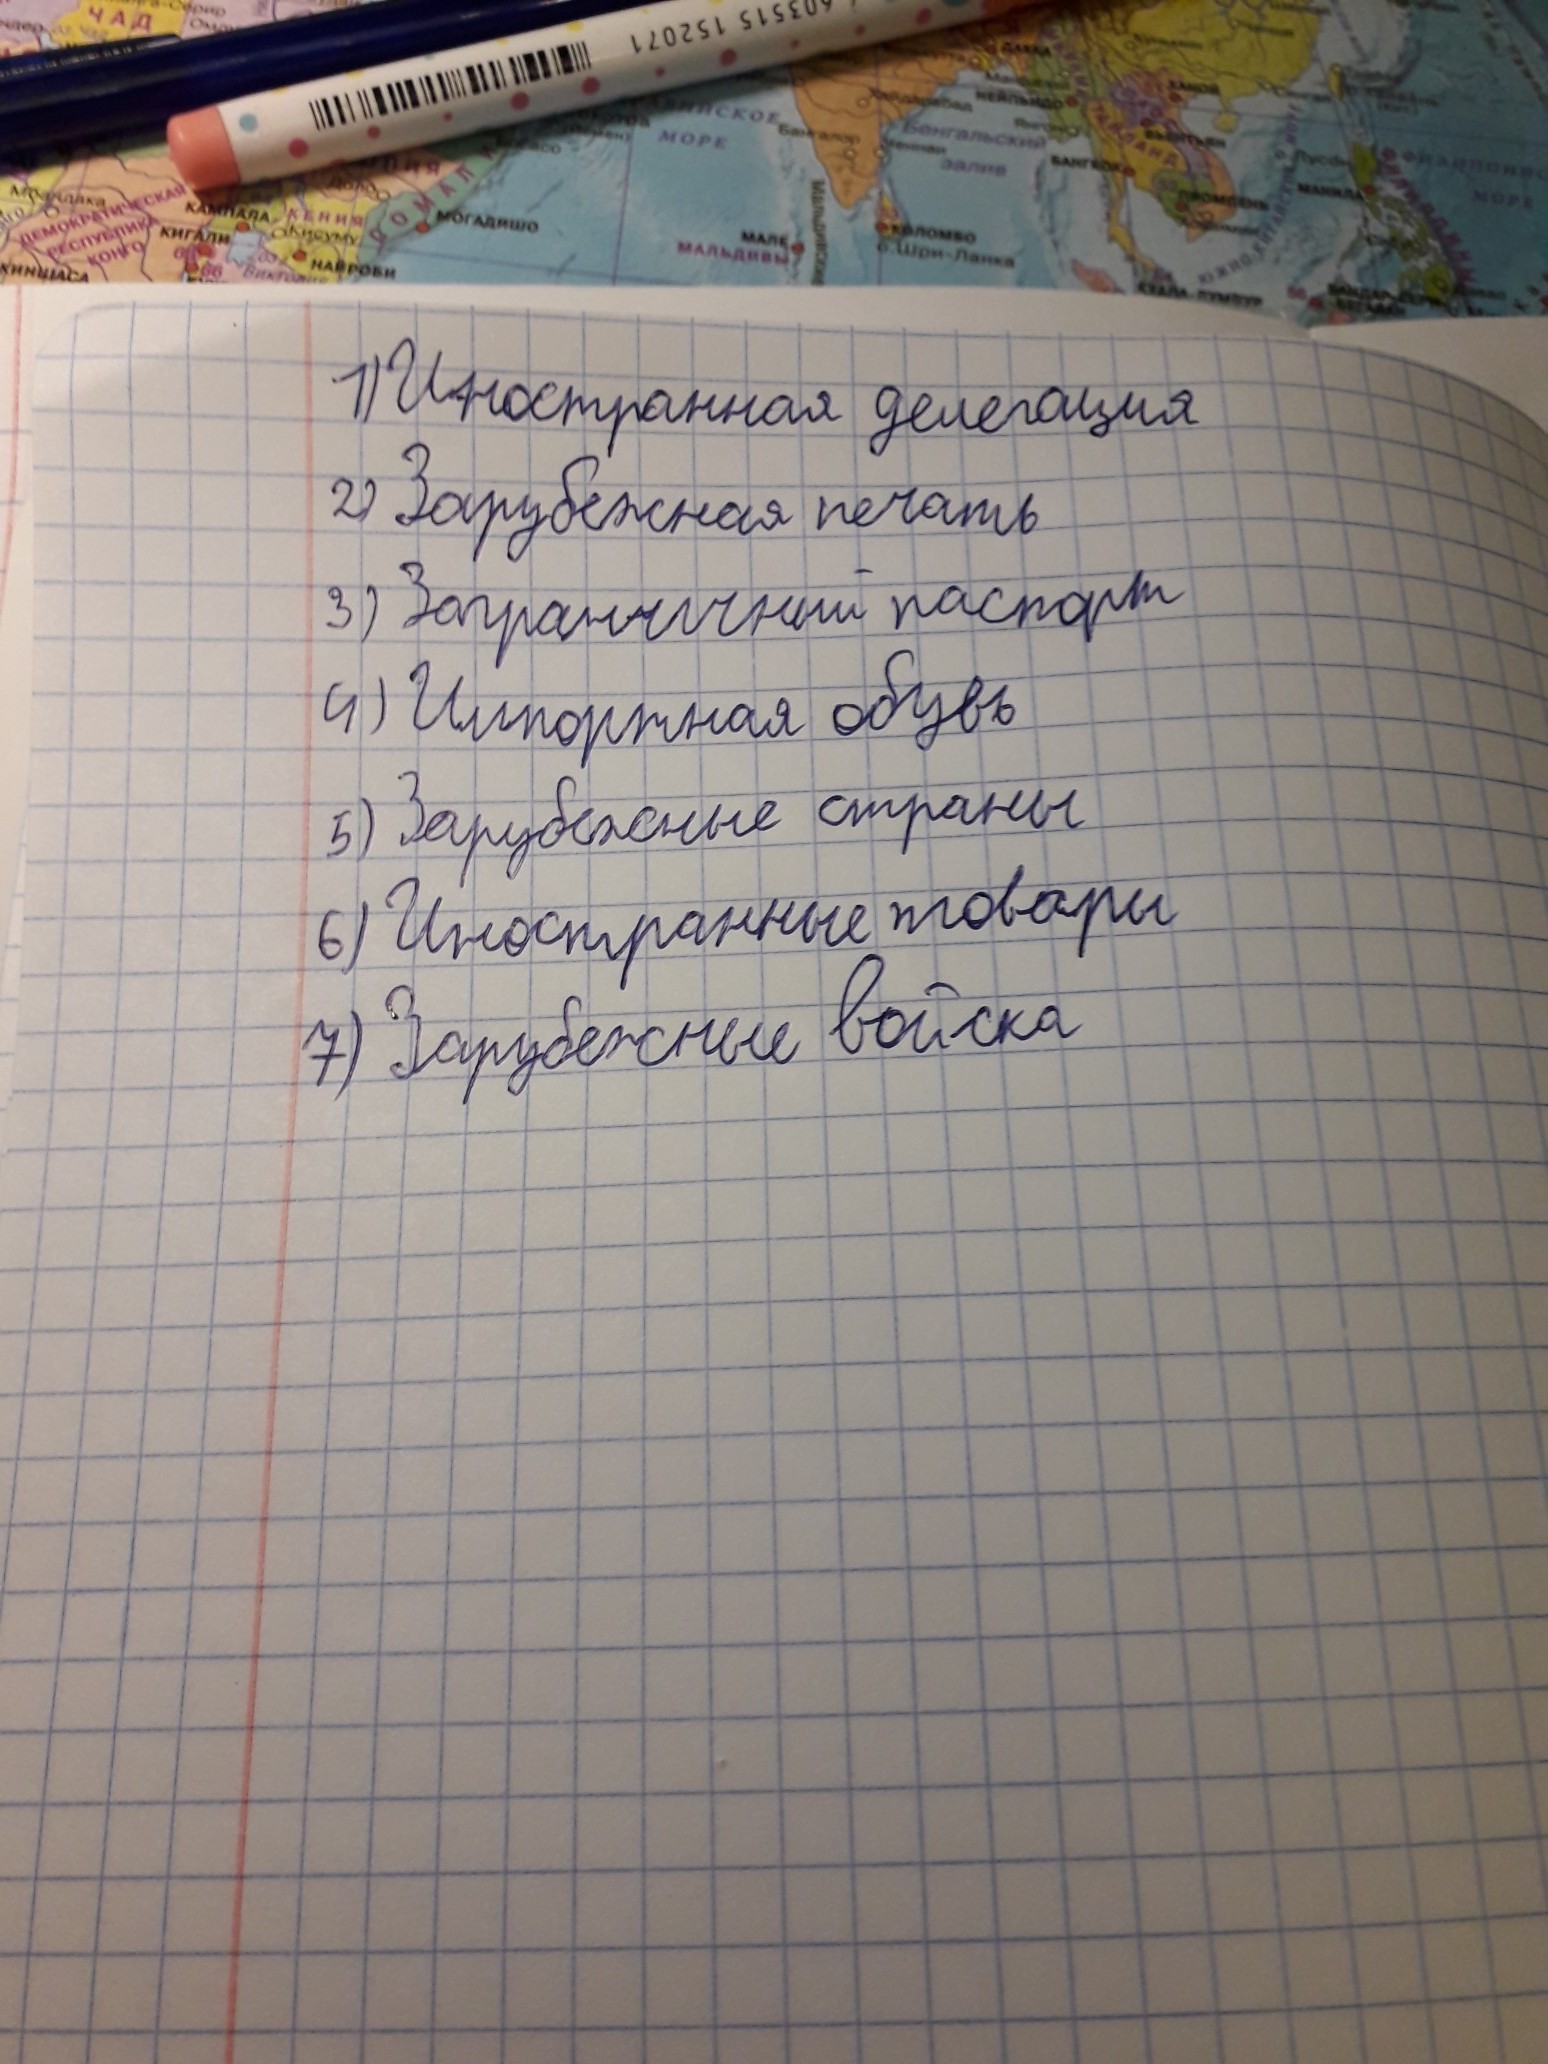 ЧАД
603515 152071
МОРЕ
Бангалор
Бенгальский
ЗАЛИВ
БАНГКОК
МАНИЛА
МОРЕ
ДЕМОКРАТИЧЕСКАЯ
РЕСПУБЛИКА
КОНГО
КАМПАЛА
КЕНИЯ
КИГАЛИ
Кисуму
МОГАДИШО
НАЙРОБИ
КИНШАСА
МАЛЕ
МАЛЬДИВЫ
КОЛОМБО
о.Шри-Ланка
1) Иностранная делегация
2) Зарубежная печать
3) Заграничный паспорт
4) Импортная обувь
5) Зарубежные страны
6) Иностранные товары
7) Зарубежные войска